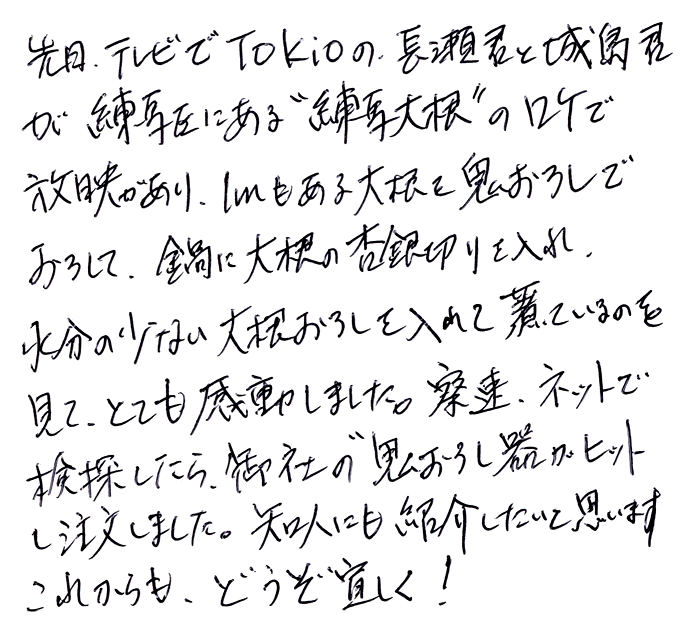 先日、テレビでTokioの、長瀬君と城島君
が 練馬区にある“練馬大根”のロケで
放映があり、1mもある大根を鬼おろしで
おろして、鍋に大根の杏銀切りを入れ、
水分の少ない大根おろしを入れて煮ているのを
見て、とても感動しました。察速、ネットで
検探したら、御社の“鬼おろし器がヒット
し注文しました。知人にも紹介したいと思います
これからも、どうぞ宜しく!